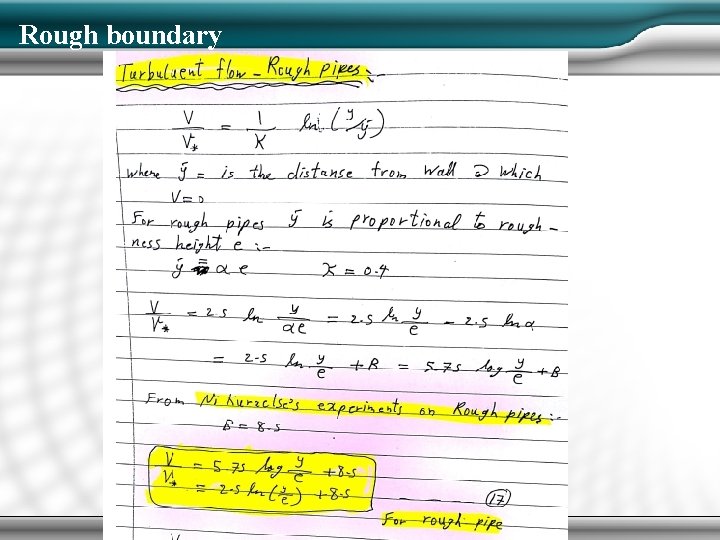 Rough boundary
Turbuluent flow - Rough pipes:-
V/V* = 1/K ln (y/ȳ)
where ȳ = is the distanse from wall @ which
V=0
For rough pipes ȳ is proportional to rough-
ness height e :-
ȳ = α e K = 0.4
V/V* = 2.5 ln y/αe = 2.5 ln y/e - 2.5 ln α
= 2.5 ln y/e + B = 5.75 log y/e + B
From Nikuraclse's experiments on Rough pipes:-
B = 8.5
V/V* = 5.75 log y/e + 8.5
= 2.5 ln (y/e) + 8.5 — (17)
For rough pipe